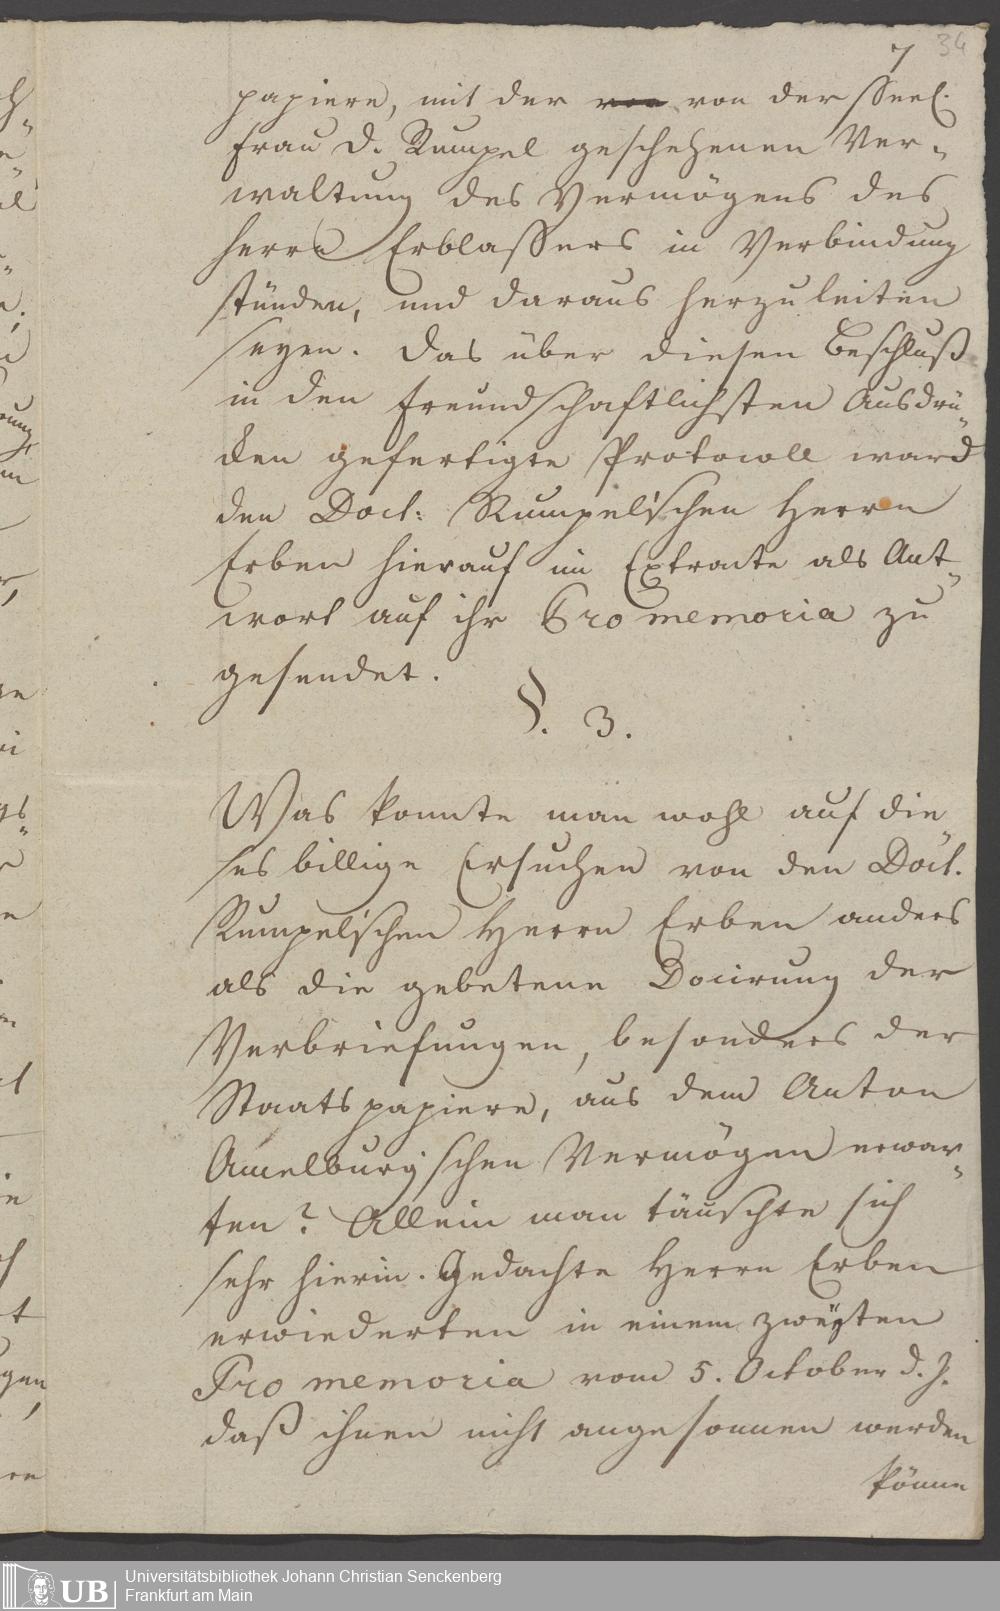 7 34
papiere, mit der von der Seel.
Frau D. Rumpel geschehenen Ver-
waltung des Vermögens des
Herrn Erblassers in Verbindung
stünden, und daraus herzuleiten
seyen. Das über diesen Beschluß
in den freundschaftlichsten Ausdrü-
cken gefertigte Protocoll ward
den Doct: Rumpel'schen Herrn
Erben hierauf im Extracte als Ant-
wort auf ihr Pro memoria zu
gesendet.
§. 3.
Was konnte man wohl auf die-
ses billige Ersuchen von den Doct.
Rumpel'schen Herrn Erben anders
als die gebetene Docirung der
Verbriefungen, besonders der
Staatspapiere, aus dem Anton
Amelburg'schen Vermögen erwar-
ten? Allein man täuschte sich
sehr hierin. Gedachte Herrn Erben
erwiederten in einem zweyten
Pro memoria vom 5. October d. J.
daß ihnen nicht angesonnen werden
könne
Universitätsbibliothek Johann Christian Senckenberg
UB Frankfurt am Main